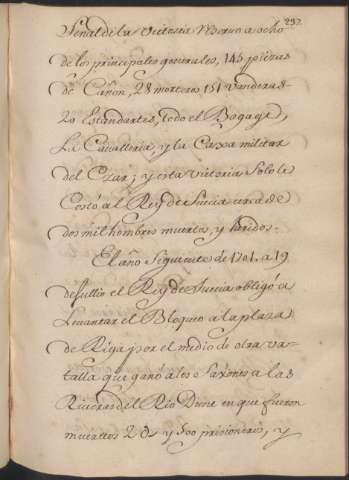 292
Señal de la Victoria reservo a ocho
de los principales generales, 145 piezas
de Cañon, 28 morteros 151 vanderas
20 Estandartes, todo el Bagage,
La Cavalleria, y la Caxa militar
del Czar; y esta victoria Solo le
Costó al Rey de Suecia cerca de
dos mil hombres muertos, y heridos.
El año Siguiente de 1701. a 19
de Jullio el Rey de Suecia obligó a
Levantar el Bloqueo a la plaza
de Riga por el medio de otra va-
talla que ganó a los Saxones a las
Riveras del Rio Dune en que fueron
muertos 2 y 500 prisioneros, y